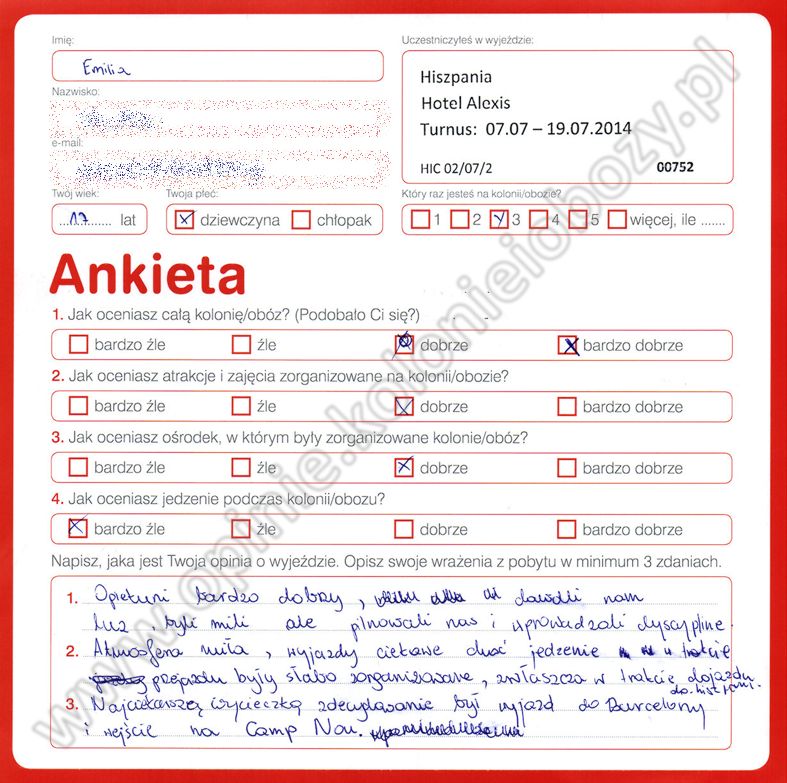 Imię:
Emilia
Uczestniczyłeś w wyjeździe:
Hiszpania
Hotel Alexis
Turnus: 07.07 – 19.07.2014
HIC 02/07/2 00752
Nazwisko:
e-mail:
Twój wiek:
17 lat
Twoja płeć:
dziewczyna chłopak
Który raz jesteś na kolonii/obozie?
1 2 3 4 5 więcej, ile .......
Ankieta
1. Jak oceniasz całą kolonię/obóz? (Podobało Ci się?)
bardzo źle źle dobrze bardzo dobrze
2. Jak oceniasz atrakcje i zajęcia zorganizowane na kolonii/obozie?
bardzo źle źle dobrze bardzo dobrze
3. Jak oceniasz ośrodek, w którym były zorganizowane kolonie/obóz?
bardzo źle źle dobrze bardzo dobrze
4. Jak oceniasz jedzenie podczas kolonii/obozu?
bardzo źle źle dobrze bardzo dobrze
Napisz, jaka jest Twoja opinia o wyjeździe. Opisz swoje wrażenia z pobytu w minimum 3 zdaniach.
1. Opiekuni bardzo dobrzy, dawali nam
luz, byli mili ale pilnowali nas i wprowadzali dyscyplinę.
2. Atmosfera miła, wyjazdy ciekawe choć jedzenie w trakcie
przejazdu były słabo zorganizowane, zwłaszcza w trakcie dojazdu
do hiszpani.
3. Najciekawszą wycieczką zdecydowanie był wyjazd do Barcelony
i wejście na Camp Nou.
www.opinie.kolonieiobozy.pl